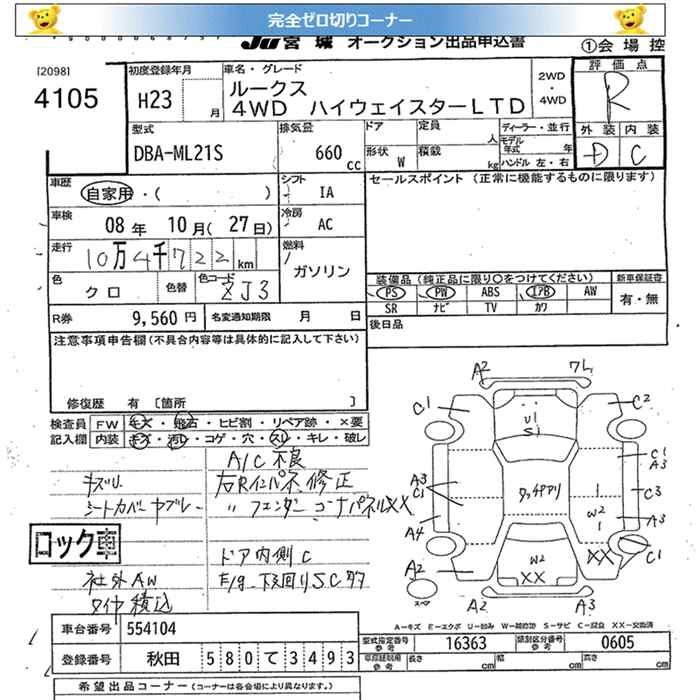 完全ゼロ切りコーナー
JU 宮城 オークション出品申込書
①会場控
[2098]
4105
初度登録年月
H23 月
車名・グレード
ルークス
4WD ハイウェイスターLTD
2WD
・
4WD
評価点
R
外装 内装
D C
型式
DBA-ML21S
排気量
660 cc
ドア
形状 W
定員 人
積載 kg
ディーラー・並行
モデル年式 年
ハンドル 左・右
車歴
自家用・( )
シフト
IA
セールスポイント (正常に機能するものに限ります)
車検
08年 10月(27日)
冷房
AC
走行
10万4千722km
燃料
ガソリン
色
クロ
色替
色コード
ZJ3
装備品(純正品に限り〇をつけてください)
新車保証書
PS PW ABS エアB AW
有・無
SR ナビ TV カワ
R券
9,560円
名変通知期限 月 日
後日品
注意事項申告欄(不具合内容等は具体的に記入して下さい)
修復歴 有 [箇所 ]
検査員
記入欄
FW キズ・飛石・ヒビ割・リペア跡・×要
内装 キズ・汚レ・コゲ・穴・スレ・キレ・破レ
A/C 不良
キズU
右Rインパネ 修正
シートカバー ヤブレ
〃 フェンダー コーナパネルXX
ロック車
ドア内側C
社外AW
E/g 下廻りSCサワ
タイヤ積込
A2
フレ
C1
C2
U1
S1
C1
A3
A3
C1
タッチアリ
C3
W2
A3
A4
W2
XX
XX
C1
A2
A2
A3
スペア
A－キズ E－エクボ U－凹み W－補修跡 S－サビ C－腐食 XX－交換済
車台番号
554104
型式指定番号
参考
16363
類別区分番号
参考
0605
登録番号
秋田 580 て 3493
長さ cm
幅 cm
高さ cm
希望出品コーナー(コーナーは各会場により異なります。)